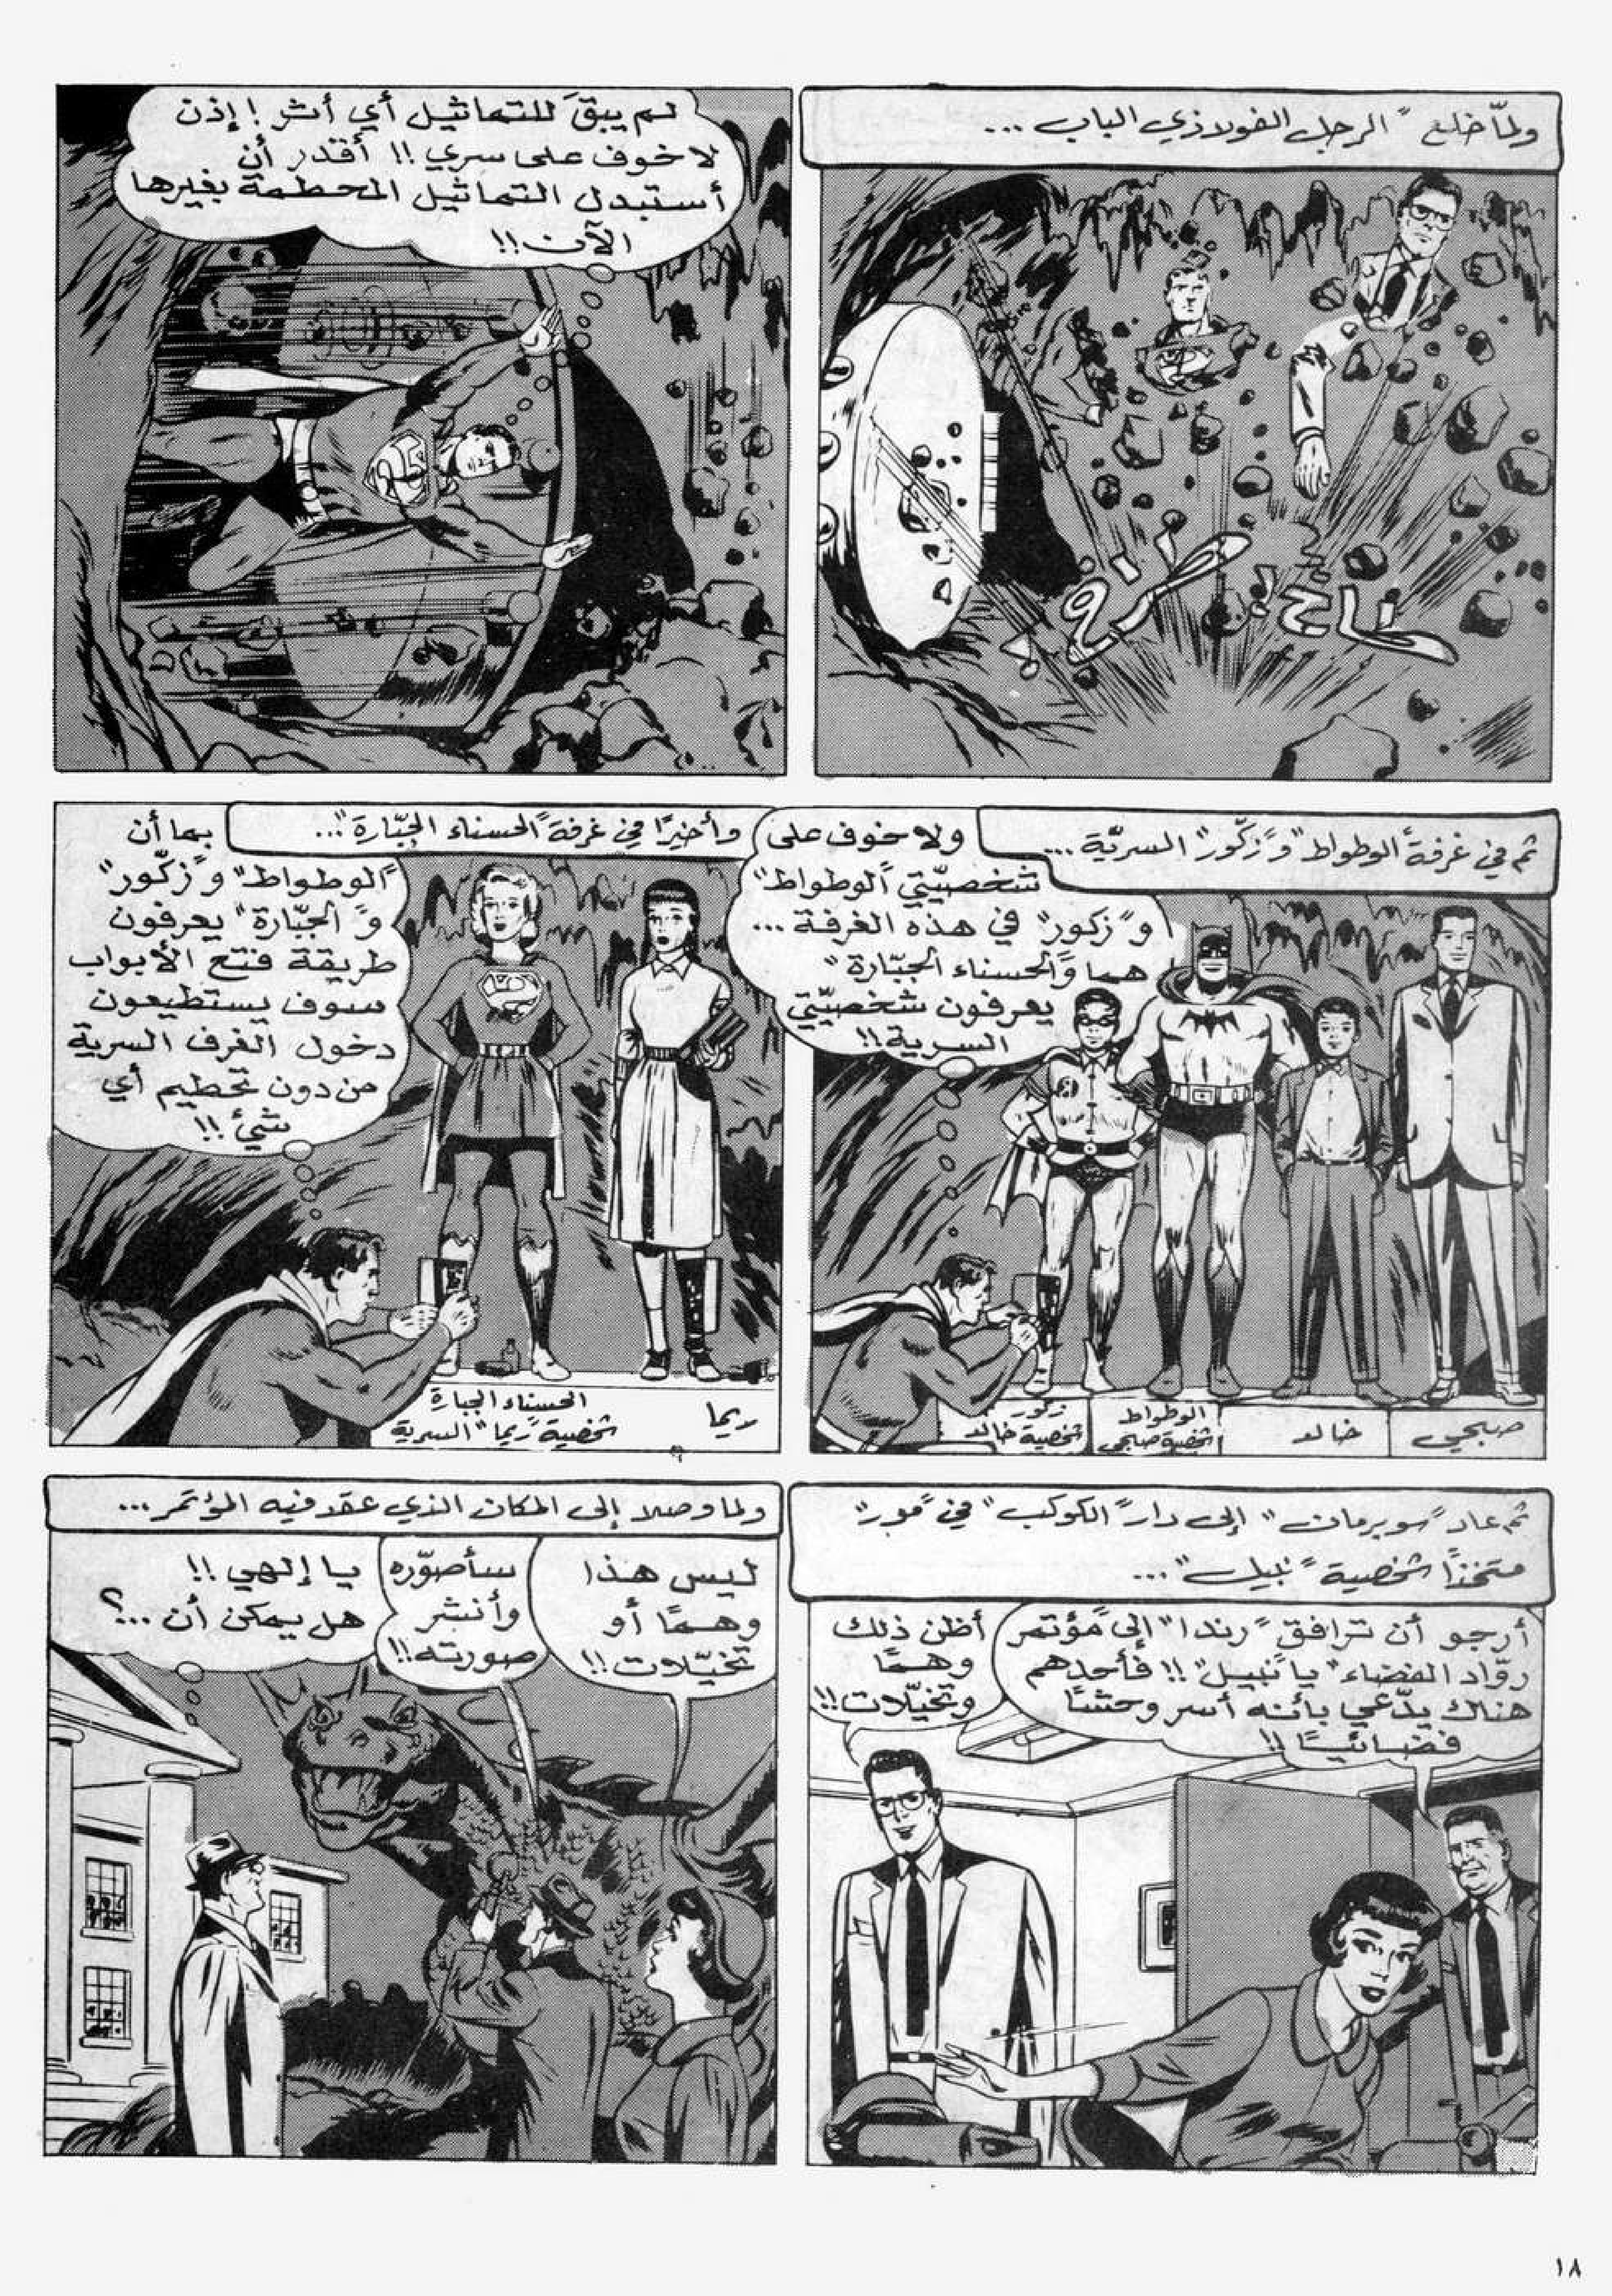 ولمّا خلع "الرجل الفولاذي الباب ...
لم يبقَ للتماثيل أي أثر! إذن
لا خوف على سري!! أقدر أن
أستبدل التماثيل المحطمة بغيرها
الآن!!
ثم في غرفة "الوطواط" و"زكّور" السريّة ...
ولا خوف على
شخصيّتي "الوطواط"
و"زكور" في هذه الغرفة ...
هما و"الحسناء الجبّارة"
يعرفون شخصيّتي
السرية!!
صبحي
خالد
الوطواط
شخصية صبحي
زكور
شخصية خالد
وأخيرًا في غرفة "الحسناء الجبّارة"...
بما أن
"الوطواط" و"زكّور"
و"الجبّارة" يعرفون
طريقة فتح الأبواب
سوف يستطيعون
دخول الغرف السرية
من دون تحطيم أي
شيء!!
ريما
الحسناء الجبارة
شخصية "ريما" السرية
ثم عاد "سوبرمان" إلى دار "الكوكب" في "مور"
متخذًا شخصية "نبيل"...
أرجو أن ترافق "رندا" إلى "مؤتمر
روّاد الفضاء" يا "نبيل"!! فأحدهم
هناك يدّعي بأنه أسر وحشًا
فضائيًا!!
أظن ذلك
وهمًا
وتخيّلات!!
ولما وصلا إلى المكان الذي عقد فيه المؤتمر ...
ليس هذا
وهمًا أو
تخيّلات!!
سأصوّره
وأنشر
صورته!!
يا إلهي!!
هل يمكن أن ...؟
١٨